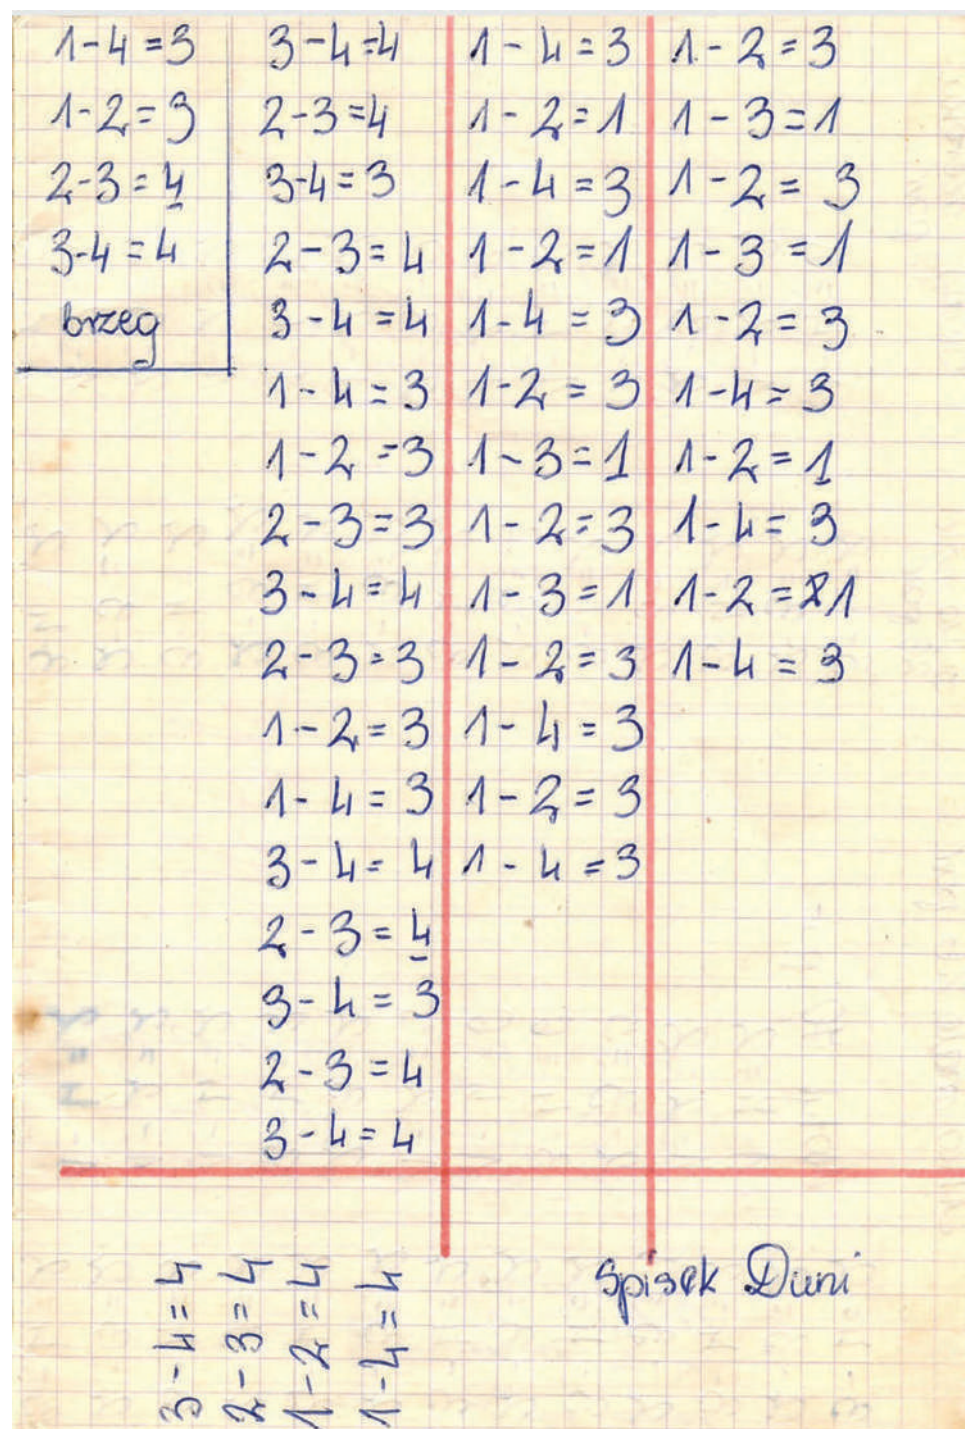 1-4=3
1-2=3
2-3=4
3-4=4
brzeg
3-4=4
2-3=4
3-4=3
2-3=4
3-4=4
1-4=3
1-2=3
2-3=3
3-4=4
2-3=3
1-2=3
1-4=3
3-4=4
2-3=4
3-4=3
2-3=4
3-4=4
1-4=3
1-2=1
1-4=3
1-2=1
1-4=3
1-2=3
1-3=1
1-2=3
1-3=1
1-2=3
1-4=3
1-2=3
1-4=3
1-2=3
1-3=1
1-2=3
1-3=1
1-2=3
1-4=3
1-2=1
1-4=3
1-2=1
1-4=3
3-4=4
2-3=4
1-2=4
1-4=4
Spisek Duni